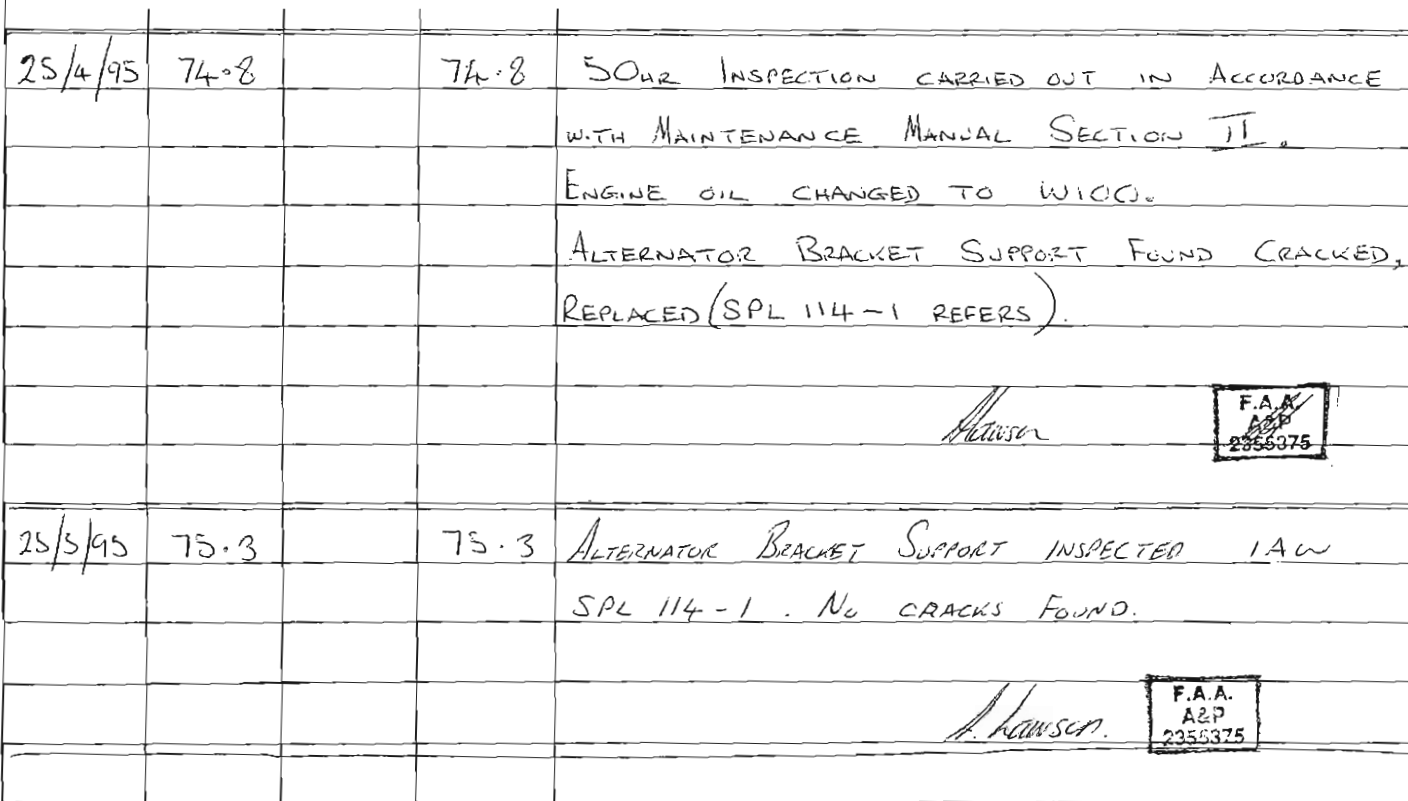 25/4/95 74.8 74.8 50HR INSPECTION CARRIED OUT IN ACCORDANCE
WITH MAINTENANCE MANUAL SECTION II.
ENGINE OIL CHANGED TO W100.
ALTERNATOR BRACKET SUPPORT FOUND CRACKED,
REPLACED (SPL 114-1 REFERS).
F.A.A.
A&P
2355375
25/5/95 75.3 75.3 ALTERNATOR BRACKET SUPPORT INSPECTED IAW
SPL 114-1. NO CRACKS FOUND.
F.A.A.
A. Lawson. A&P
2355375